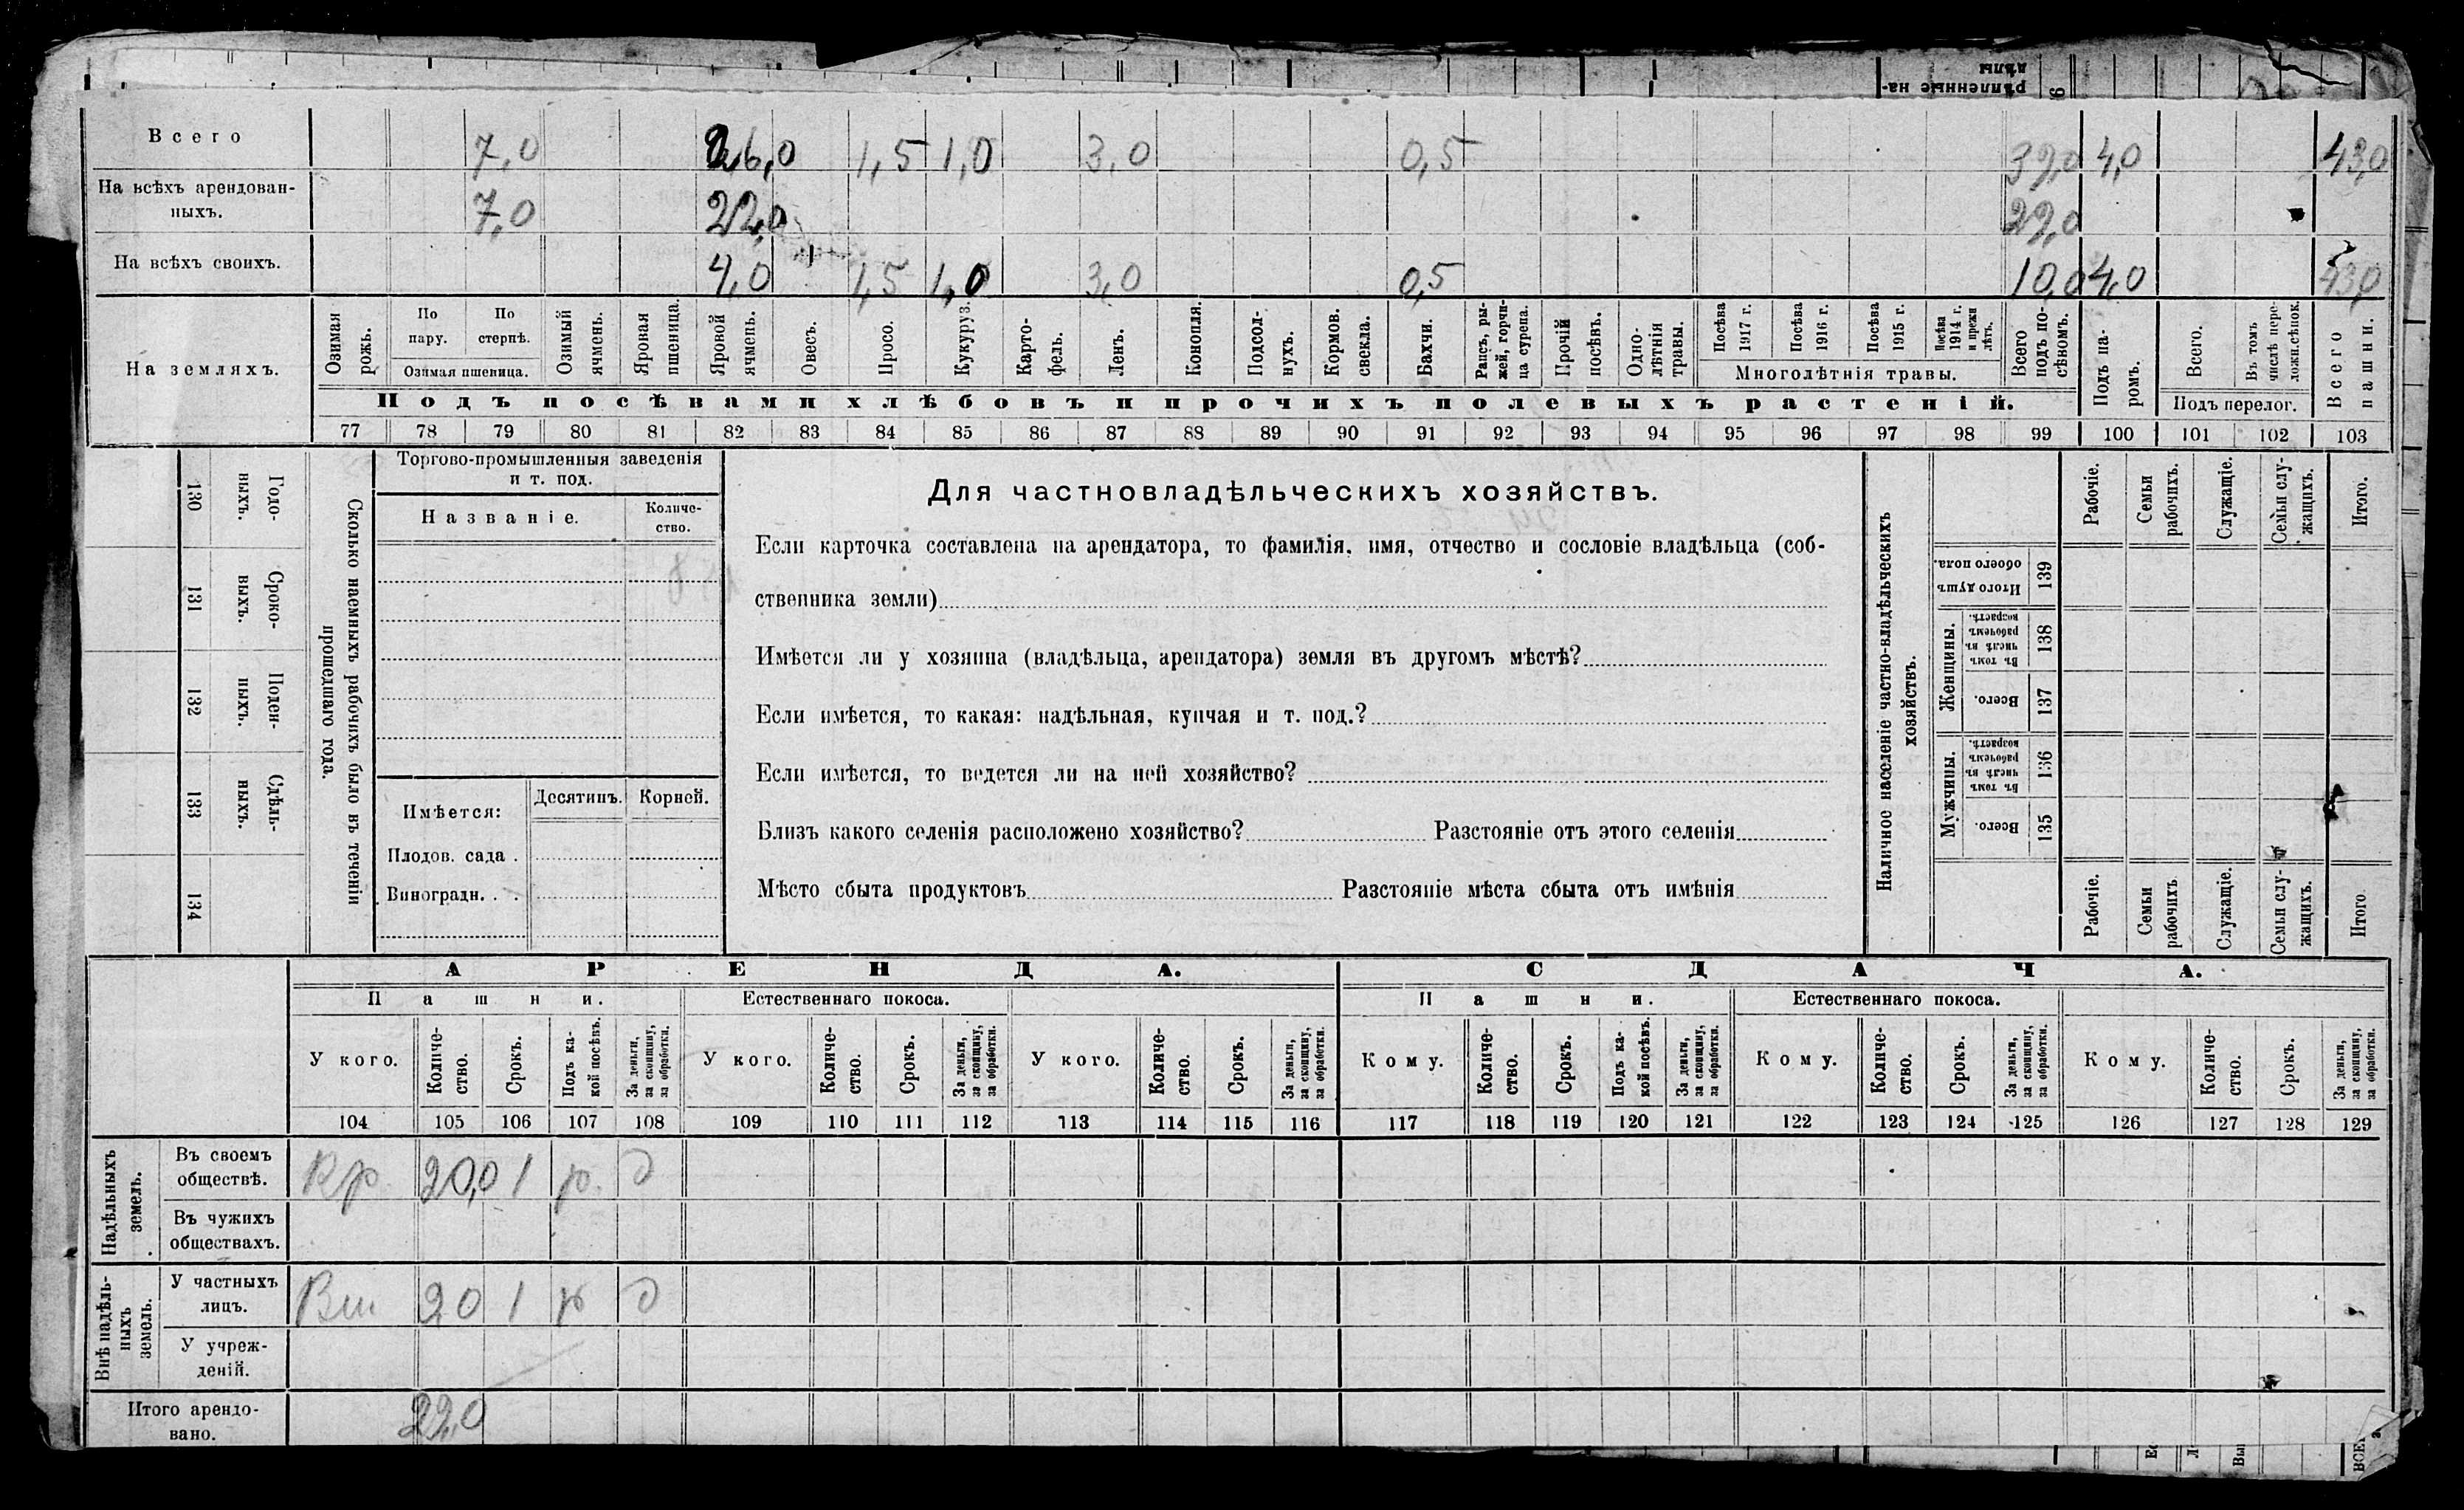 рѣпленные на-
дѣлы
Всего 7,0 26,0 1,5 1,0 3,0 0,5 39,0 4,0 43,0
На всѣхъ арендован-
ныхъ. 7,0 22,0 29,0
На всѣхъ своихъ. 4,0 1,5 1,0 3,0 0,5 10,0 4,0 43,0
На земляхъ.
Озимая рожь.
По пару.
По стернѣ.
Озимая пшеница.
Озимый ячмень.
Яровая пшеница.
Яровой ячмень.
Овесъ.
Просо.
Кукуруз.
Карто-
фель.
Ленъ.
Конопля.
Подсол-
нухъ.
Кормов. свекла.
Бахчи.
Рапсъ, ры-
жей, горчи-
ца сурепа.
Прочій посѣвъ.
Одно-
лѣтнія травы.
Посѣва 1917 г.
Посѣва 1916 г.
Посѣва 1915 г.
Посѣва 1914 г. и прежн лѣтъ.
Многолѣтнія травы.
Всего подъ по-
сѣвомъ.
Подъ па-
ромъ.
Всего.
Въ томъ числѣ пере-
ложн.сѣнок.
Подъ перелог.
Всего пашни.
Подъ посѣвами хлѣбовъ и прочихъ полевыхъ растеній.
77 78 79 80 81 82 83 84 85 86 87 88 89 90 91 92 93 94 95 96 97 98 99 100 101 102 103
130 Годо-
ныхъ.
131 Сроко-
выхъ.
132 Поден-
ныхъ.
133 Сдѣль-
ныхъ.
134
Сколько наемныхъ рабочихъ было въ теченіи
прошедшаго года.
Торгово-промышленныя заведенія
и т. под.
Названіе.
Количе-
ство.
Имѣется: Десятинъ. Корней.
Плодов. сада .
Виноградн. . .
Для частновладѣльческихъ хозяйствъ.
Если карточка составлена на арендатора, то фамилія, имя, отчество и сословіе владѣльца (соб-
ственника земли)
Имѣется ли у хозяина (владѣльца, арендатора) земля въ другомъ мѣстѣ?
Если имѣется, то какая: надѣльная, купчая и т. под.?
Если имѣется, то ведется ли на ней хозяйство?
Близъ какого селенія расположено хозяйство? Разстояніе отъ этого селенія
Мѣсто сбыта продуктовъ Разстояніе мѣста сбыта отъ имѣнія
Наличное населеніе частно-владѣльческихъ
хозяйствъ.
Рабочіе.
Семьи рабочихъ.
Служащіе.
Семьи слу-
жащихъ.
Итого.
Итого душъ обоего пола. 139
Женщины.
Въ томъ числѣ въ рабочемъ возрастѣ. 138
Всего. 137
Мужчины.
Въ томъ числѣ въ рабочемъ возрастѣ. 136
Всего. 135
Рабочіе.
Семьи рабочихъ
Служащіе.
Семьи слу-
жащихъ.
Итого
АРЕНДА. СДАЧА.
Пашни. Естественнаго покоса. Пашни. Естественнаго покоса.
У кого.
Количе-
ство.
Срокъ.
Подъ ка-
кой посѣвъ.
За деньги, за скопщину, за обработки.
У кого.
Количе-
ство.
Срокъ.
За деньги, за скопщину, за обработки.
У кого.
Количе-
ство.
Срокъ.
За деньги, за скопщину, за обработки.
Кому.
Количе-
ство.
Срокъ.
Подъ ка-
кой посѣвъ.
За деньги, за скопщину, за обработки.
Кому.
Количе-
ство.
Срокъ.
За деньги, за скопщину, за обработки.
Кому.
Количе-
ство.
Срокъ.
За деньги, за скопщину, за обработки.
104 105 106 107 108 109 110 111 112 113 114 115 116 117 118 119 120 121 122 123 124 125 126 127 128 129
Надѣльныхъ земель.
Въ своемъ
обществѣ. Кр. 20,0 1 р. д
Въ чужихъ
обществахъ.
Внѣ надѣль-
ныхъ земель.
У частныхъ
лицъ. 20 1 р д
У учреж-
деній.
Итого арендо-
вано. 22,0